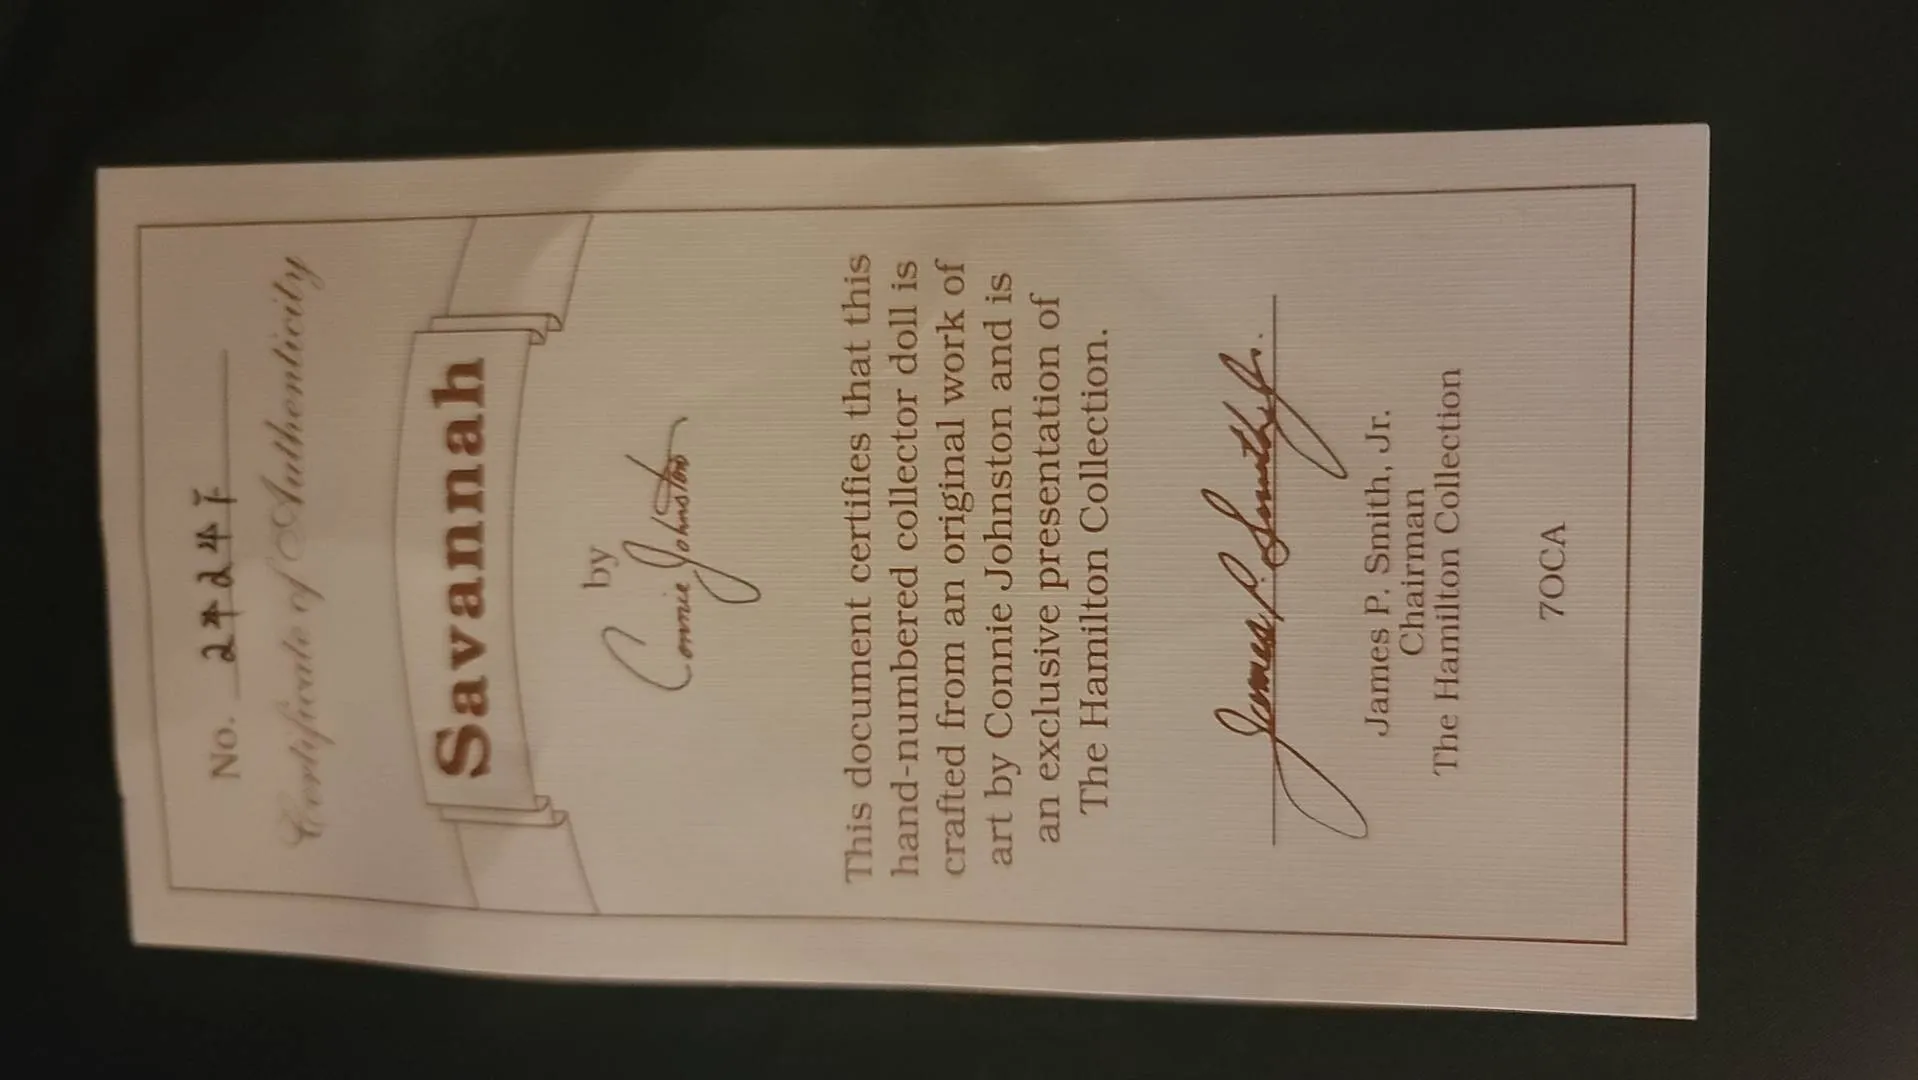 No. 2424F
Certificate of Authenticity
Savannah
by
Connie Johnston
This document certifies that this
hand-numbered collector doll is
crafted from an original work of
art by Connie Johnston and is
an exclusive presentation of
The Hamilton Collection.
James P. Smith, Jr.
James P. Smith, Jr.
Chairman
The Hamilton Collection
7OCA